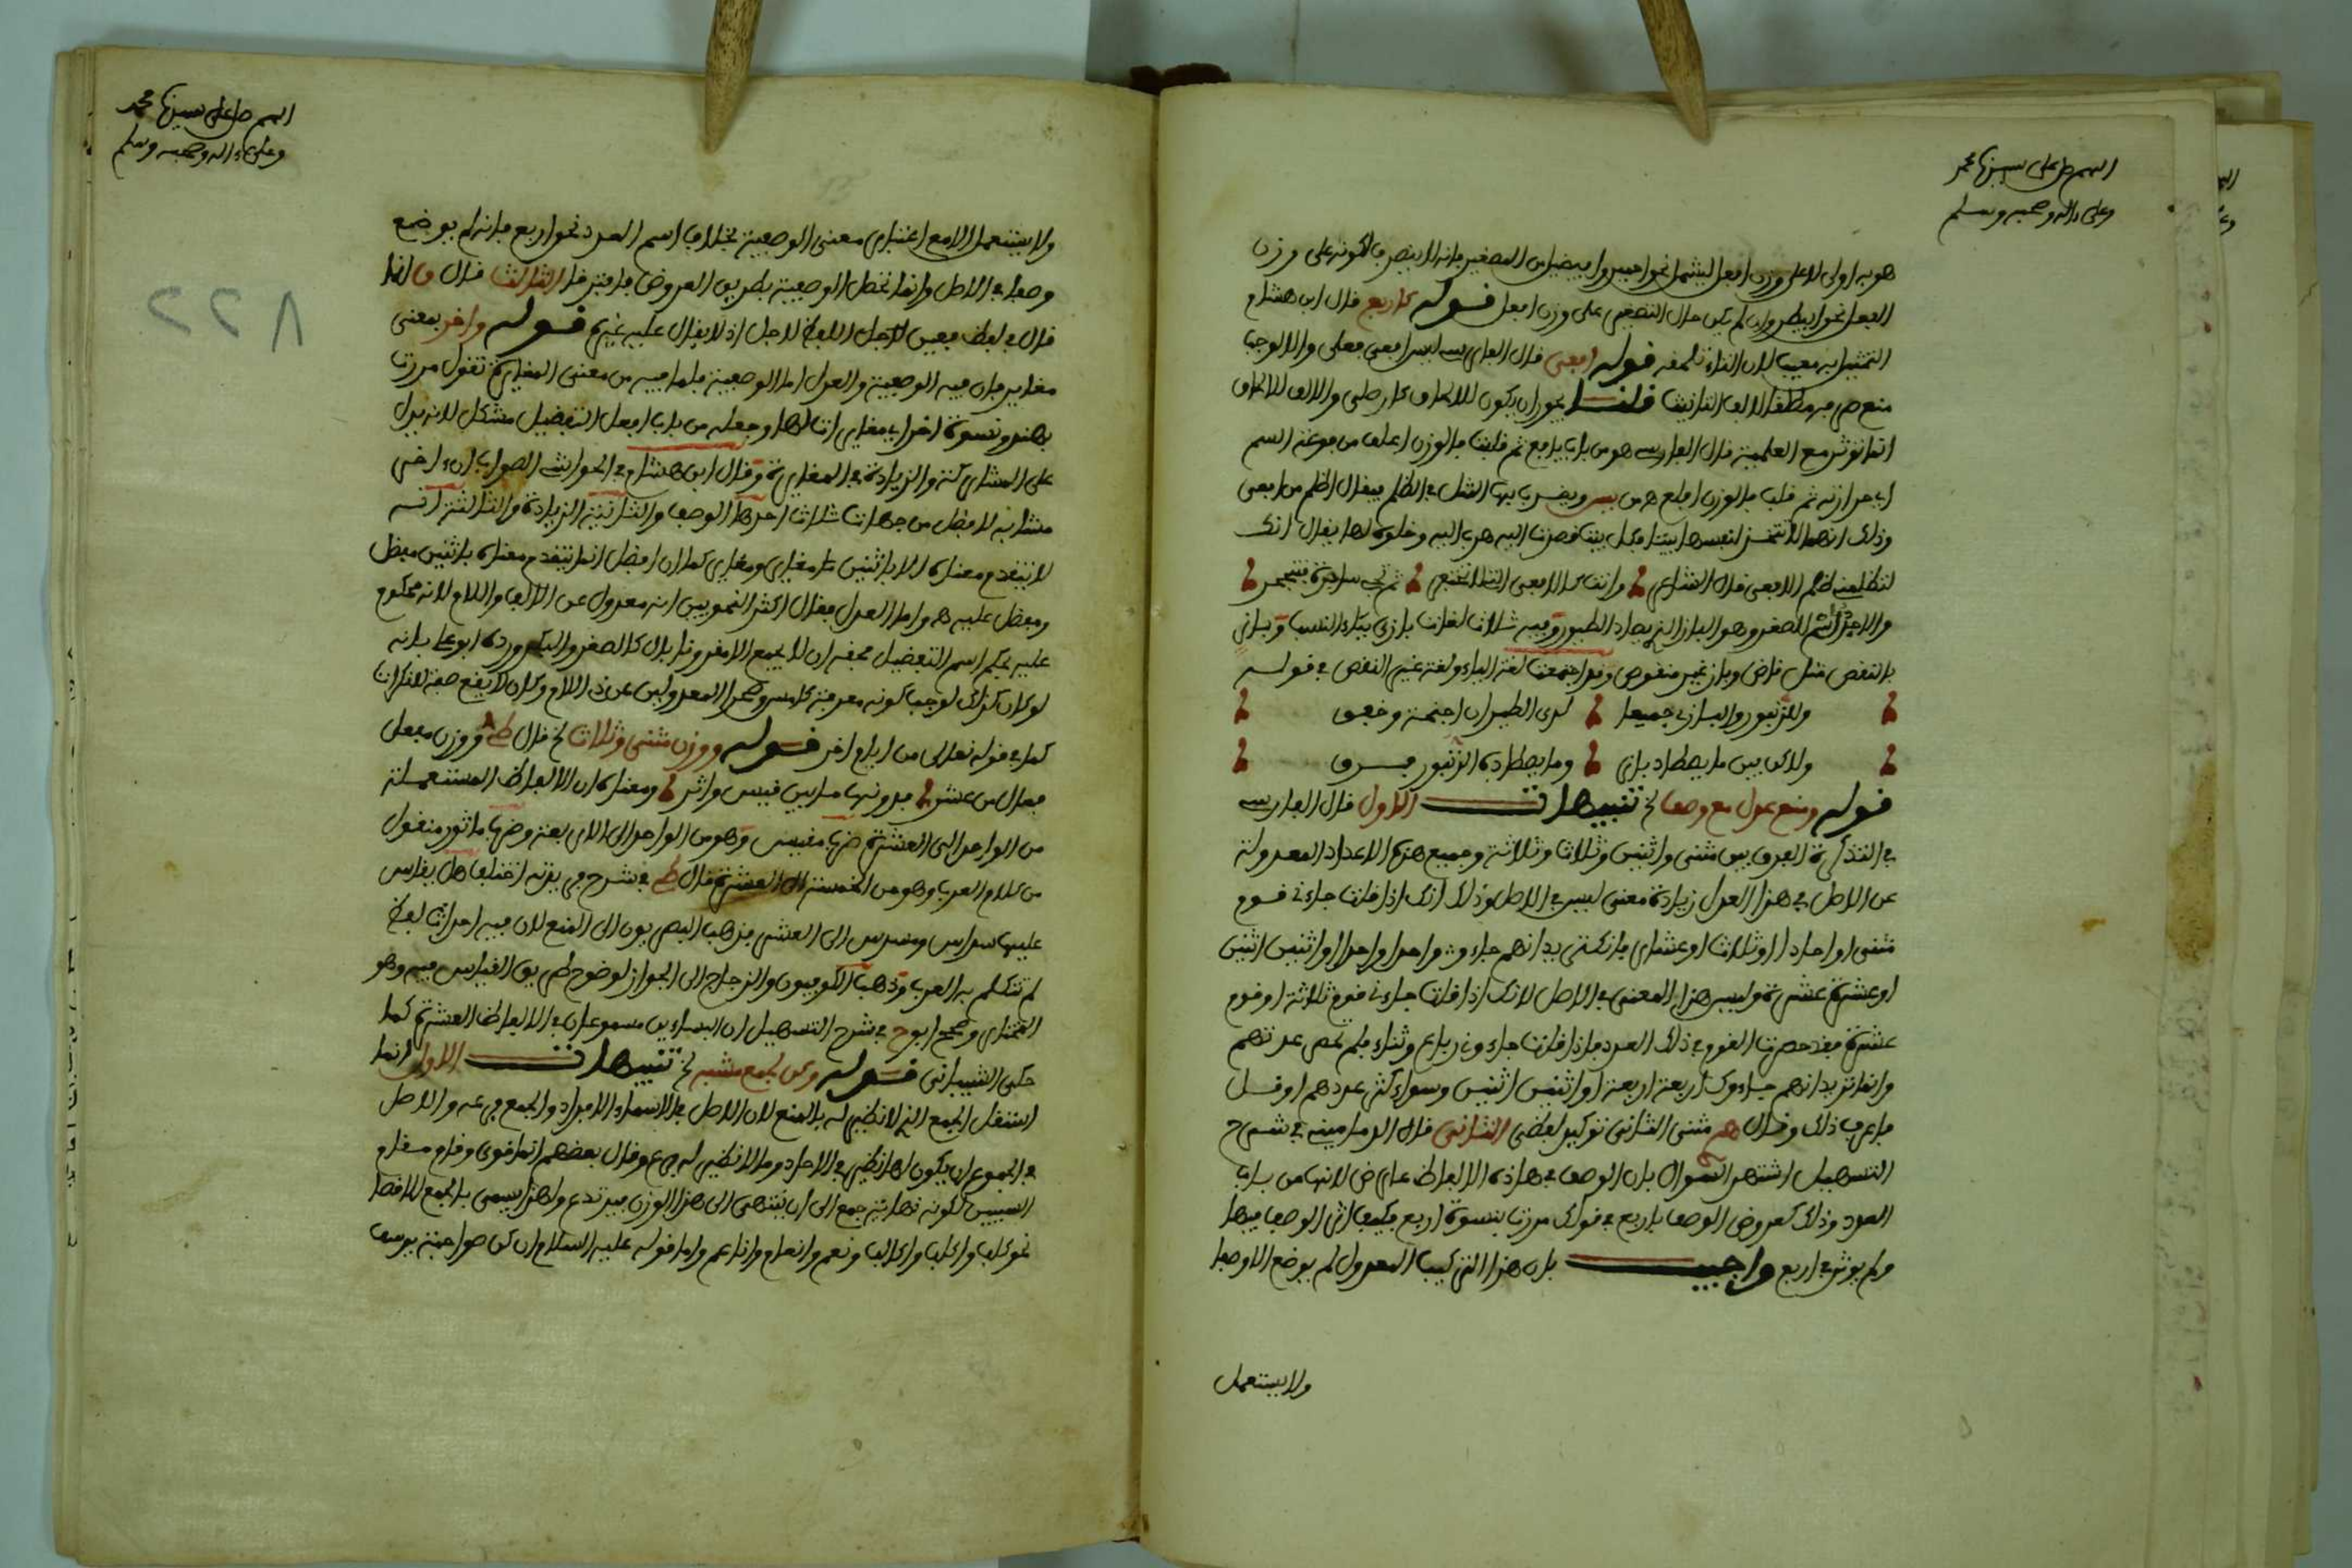 اللهم صل على سيدنا محمد
وعلى ءاله وصحبه وسلم
هو به أولى للاعلى وزن افعل ليشمل نحو احيمر وافيضل من المصغر فانه لا ينصرف لكونه على وزن
الفعل نحو ابيطر وان لم يكن حال التصغير على وزن افعل قوله كاربع قال ابن هشام
التمثيل به معيب لان التاء تلحقه قوله افعى قال الفارسي ليس افعى فعلى والا لوجب
منع صرفه مطلقا لالف التانيث قلت يجوز ان يكون للالحاق كارطى والالف للالحاق
انما تؤثر مع العلمية قال الفارسي هو من باب يافع ثم قلبت فالوزن اعلف من فوعة السم
اي حرارته ثم قلب فالوزن افلع ويضرب بها المثل في الظلم فيقال اظلم من افعى
وذلك انها لا تتخذ لنفسها بيتا فكل بيت قصدت اليه هرب اليه وخلوه لها يقال انك
لتظلمني ظلم الافعى قال الشاعر وانت كالافعى التي لا تحتفر ثم تجي سادرة فتنجحر
والاجدل اسم للصقر وهو الباز الذي يصاد الطيور وفيه ثلاث لغات بازي بياء النسب وبازي
بالنقص مثل قاض وباز غير منقوص وقد اجتمعت لغة الياء ولغة غير النقص في قوله
وللزنبور والبازي جميعا لدى الطيران اجنحة وخفق
ولاكن بين ما يصطاد بازي وما يصطاده الزنبور فرق
قوله ومنع عدل مع وصف الخ تنبيهات الاول قال الفارسي
في التذكرة الفرق بين مثنى واثنين وثلاث وثلاثة وجميع هذه الاعداد المعدولة
عن الاصل في هذا العدل زيادة معنى ليس في الاصل وذلك انك اذا قلت جاءني قوم
مثنى او احاد او ثلاث او عشار فانك تريد انهم جاءوك واحدا واحدا او اثنين اثنين
او عشرة عشرة وليس هذا المعنى في الاصل لانك اذا قلت جاءني قوم ثلاثة او قوم
عشرة فقد حصرت القوم في ذلك العدد فاذا قلت جاءوني رباع وثناء فلم تحصر عدتهم
وانما تريد انهم جاءوك اربعة اربعة او اثنين اثنين وسواء كثر عددهم او قل
فاعرف ذلك وقال مثنى الثاني توكيد لفظي الثاني قال الدماميني في شرح
التسهيل اشتهر السؤال بان الوصف في هاذه الالفاظ عارض لانها من باب
العدد وذلك كعروض الوصف باربع في قولك مررت بنسوة اربع فكيف اثر الوصف فيها
ولم يؤثر في اربع واجيب بان هذا التركيب المعدول لم يوضع الا وصفا
ولا يستعمل
اللهم صل على سيدنا محمد
وعلى ءاله وصحبه وسلم
ولا يستعمل الا مع اعتبار معنى الوصفية بخلاف اسم العدد نحو اربع فانه لم يوضع
وصفا في الاصل وانما تحصل الوصفية بطريق العروض فافترقا الثالث قال
قال في لفظ معين لاجل اللفظ لاجل اذ لا يقال عليه غيره قوله واخر بمعنى
مغاير فان فيه الوصفية والعدل اما الوصفية فلما فيه من معنى المغايرة تقول مررت
بهند ونسوة اخر اي مغايرات لها وجعله من باب افعل التفضيل مشكل لانه يدل
على المشاركة والزيادة في المغايرة وقال ابن هشام في الحواشي الصواب ان ءاخر
مشابه لافضل من جهات ثلاث احدها الوصف والثانية الزيادة والثالثة انه
لا يتقدم معناه الا باثنين مغاير ومغاير كما ان افضل انما يتقدم معناه باثنين مفضل
ومفضل عليه واما العدل فقال اكثر النحويين انه معدول عن الالف واللام لانه محكوم
عليه بحكم اسم التفضيل فحقه ان لا يجمع الا مقرونا بال كالصغر والكبر ورده ابو علي بانه
لو كان كذلك لوجب كونه معرفة كامس وسحر المعدولين عن ذي اللام وكان لا يقع صفة للنكرات
كما في قوله تعالى من ايام اخر قوله ووزن مثنى وثلاث الخ قال وزن مفعل
فعال من عشر فدونها ما بين قيس واثر ومعناه ان الالفاظ المستعملة
من الواحد الى العشرة ضربها مقيس وهو من الواحد الى الاربعة وضربها ماثور منقول
من كلام العرب وهو من الخمسة الى العشرة قال في شرح اختلف هل يقاس
عليها سداس ومسدس الى العشر فذهب البصريون الى المنع لان فيه احداث لفظ
لم تتكلم به العرب وذهب الكوفيون والزجاج الى الجواز لوضوح طريق القياس فيه وهو
المختار وصحح ابوح في شرح التسهيل ان البناءين مسموعان في الالفاظ العشرة كما
حكى الشيباني قوله وكن لجمع مشبه الخ تنبيهات الاول انما
استقل الجمع الذي لا نظير له بالمنع لان الاصل في الاسماء الافراد والجمع فرعه والاصل
في الجموع ان يكون لها نظير في الاحاد وما لا نظير له فرع وقال بعضهم انما قوي وقام مقام
السببين لكونه نهاية جمع الى ان ينتهي الى هذا الوزن فيرتدع ولهذا يسمى بالجمع الاقصا
نحو كلب واكلب واكالب ونعم وانعام واناعم واما قوله عليه السلام ان كن صواحبة يوسف